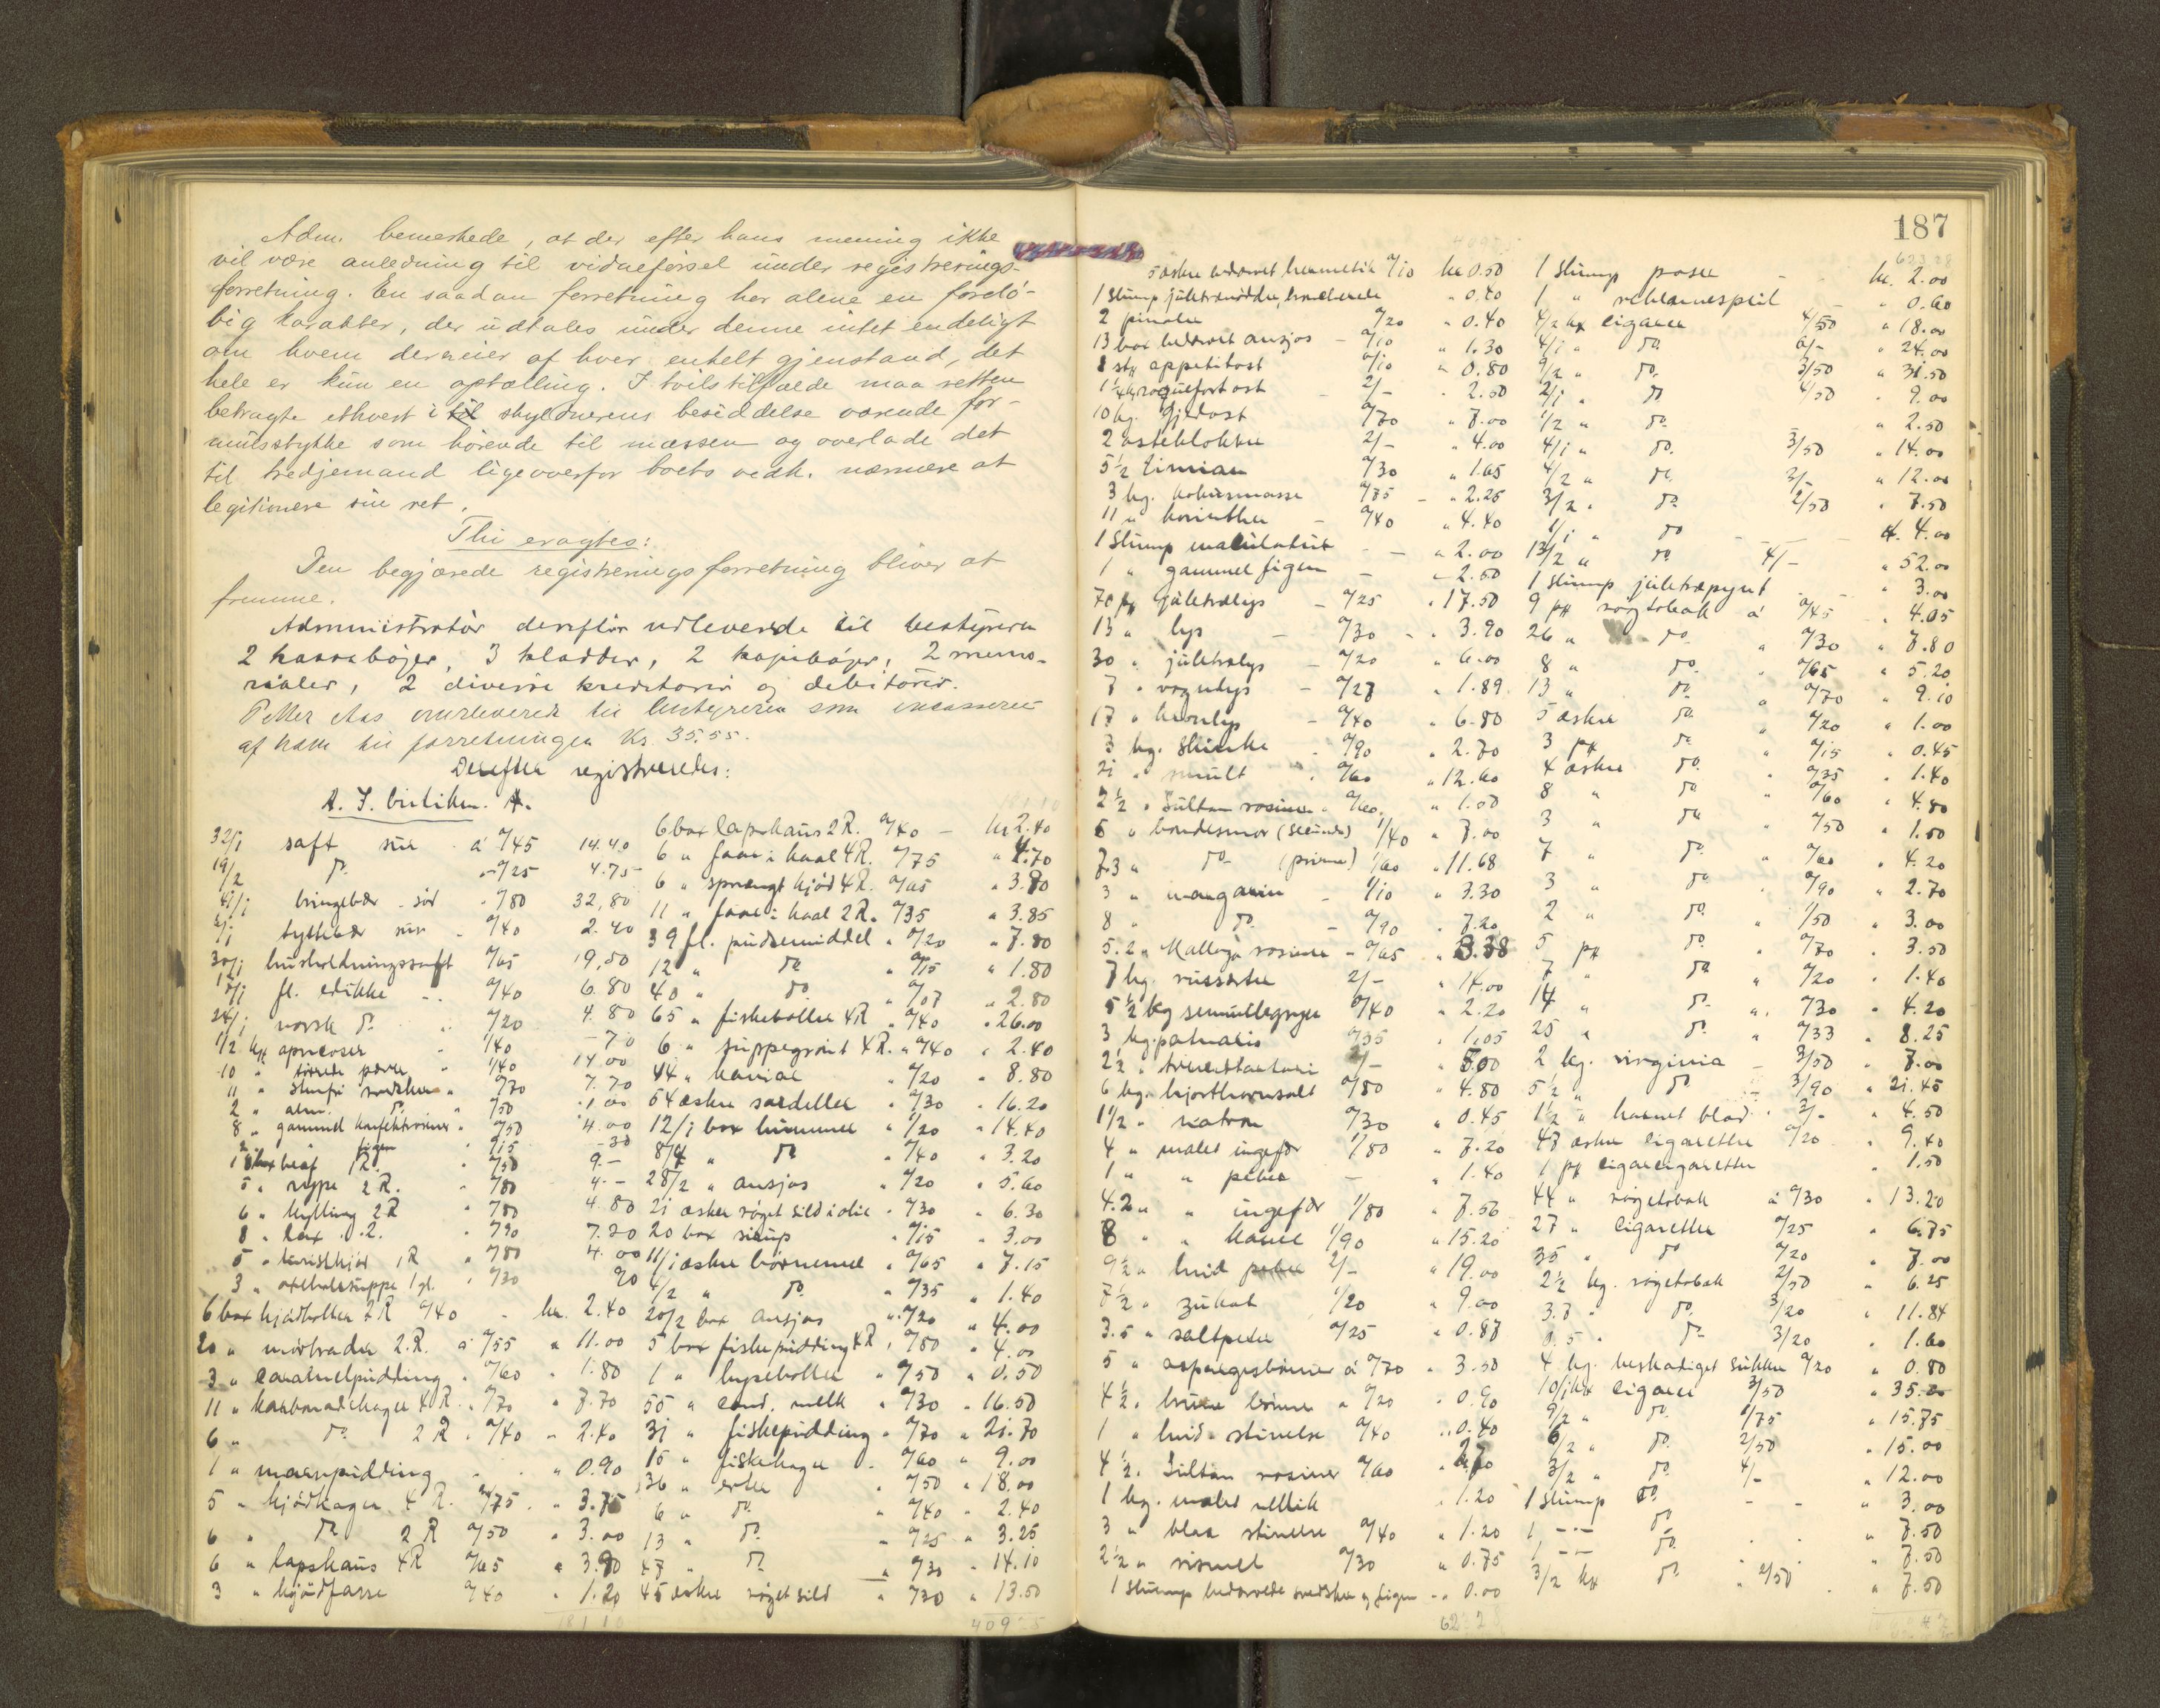 Adm. bemerkede, at der efter hans mening ikke
vil være anledning til vidneførsel under registrerings-
forretning. En saadan forretning har alene en foreló-
big karakter, der udtales under denne intet endeligt
om hvem der eier af hver enkelt gjenstand, det
hele er kun en optælling. I tvilstilfælde maa retten
betragte ethvert i skyldnerens besiddelse værende for-
muesstykke som hörende til massen og overlade det
til tredjemand ligeoverfor boets vedk. nærmere at
legitimere sin ret.
Thi eragtes:
Den begjærede registreringsforretning bliver at
fremme.
Administrator derefter udleverede til bestyreren
2 kassebøger, 3 kladder, 2 kopibøger, 2 memo-
rialer, 2 diverse kreditorer og debitorer.
Petter Aas overleverede til bestyreren som incasseret
af ham til forretningen Kr. 35.55.
Derefter registreredes:
A. I. butiken. A.
32/1 saft sur á "/45 14.40
19/2 do "/25 4.75
41/1 bringebær - sød "/80 32,80
6/1 tyttebær sur "/40 2.40
30/1 husholdningssaft "/65 19,50
17/1 fl. edikke "/40 6.80
24/1 norsk do "/20 4.80
1/2 kg aprikoser 1/40 -70
10 " tørrede pærer 1/40 14.00
11 " stenfri svedsker "/70 7.70
2 " alm. do "/50 1.00
8 " gammel konfektrosiner "/50 4.00
2 " " figen "/15 -30
" rype 2 R. "/80 4.-
6 " kylling 2 R "/80 4.80
8 " lax "/90 7.20
5 " 1 R "/80 4.00
3 " oxehalesuppe 1 pl. "/30 90
6 box kjødboller 2 R "/40 kr. 2.40
20 " mørbrader 2 R. á "/55 " 11.00
3 " caramelpudding "/60 " 1.80
11 " karbonadekager 4 R. "/70 " 7.70
6 " do 2 R "/40 " 2.40
1 " mannapudding " 0.90
5 " kjødkager 4 R. "/75 " 3.75
6 " do 2 R "/50 " 3.00
6 " lapskaus 4 R "/65 " 3.90
3 " kjødfarse "/40 " 1.20
181.10
6 box lapskaus 2 R. "/40 kr 2.40
6 " faar i kaal 4 R. "/75 " 4.70
6 " sprængt kjød 4 R. "/65 " 3.90
11 " faar i kaal 2 R. "/35 " 3.85
39 fl. pudsemiddel "/20 " 7.80
12 " do "/15 " 1.80
40 " do "/07 " 2.80
65 " fiskeboller 4 R "/40 " 26.00
6 " suppegrønt 4 R. "/40 " 2.40
44 " kaviar "/20 " 8.80
54 æsker sardeller "/30 " 16.20
12/1 box hummer 1/20 " 14.40
8/4 " do "/40 " 3.20
28/2 " ansjos "/20 " 5.60
21 æsker røget sild i olie "/30 " 6.30
20 box sirup "/15 " 3.00
11/1 æsker børnemel "/65 " 7.15
4/2 " do "/35 " 1.40
20/2 box ansjos "/20 " 4.00
5 box fiskepudding 4 R "/80 " 4.00
1 " hyseboller "/50 " 0.50
55 " cond. melk "/30 " 16.50
31 " fiskepudding "/70 " 21.70
15 " fiskekager "/60 " 9.00
36 " erter "/50 " 18.00
6 " do "/40 " 2.40
13 " do "/25 " 3.25
47 " do "/30 " 14.10
45 æsker røget sild "/30 " 13.50
187
5 æsker bedærvet hermetik "/10 kr 0.50
1 slump juletrænødder, " 0.40
2 "/20 " 0.40
13 box bedærvet ansjos "/10 " 1.30
8 stk appetitost "/10 " 0.80
1 1/4 kg roquefortost 2/- " 2.50
10 kg. gjedost "/70 " 7.00
2 osteklokker 2/- " 4.00
5 1/2 timian "/30 " 1.65
3 kg. kokusmasse "/75 " 2.25
11 " korinther "/40 " 4.40
1 slump makulatur " 2.00
1 " gammel figen 2.50
70 pk juletrælys "/25 " 17.50
13 " lys "/30 " 3.90
30 " juletrælys "/20 " 6.00
7 " vognlys "/27 " 1.89
17 " kronlys "/40 " 6.80
3 kg. skinke "/90 " 2.70
21 " smult "/60 " 12.60
2 1/2 " Sultan rosiner "/40 " 1.00
5 " bondesmør (secunda) 1/40 " 7.00
7.3 " do (prima) 1/60 " 11.68
3 " margarin 1/10 " 3.30
8 " do "/90 " 7.20
5.2 " Mallaga rosiner "/65 " 3.38
7 kg. russerter 2/- " 14.00
5 1/2 kg semulegryn "/40 " 2.20
3 kg. palmario "/35 " 1,05
6 kg. hjorthornsalt "/80 " 4.80
1 1/2 " natron "/30 " 0.45
4 " malet ingefær 1/80 " 7.20
1 " " peber " 1.40
4.2 " " ingefær 1/80 " 7.56
8 " " kanel 1/90 " 15.20
9 1/2 " hvid peber 2/- " 19.00
7 1/2 " zukat 1/20 " 9.00
3.5 " saltpeter "/25 " 0.87
5 " aspargesbønner á "/70 " 3.50
4 1/2 " brune bønner "/20 " 0.90
1 " hvid - stivelse "/40 " 0.40
4 1/2 " Sultan rosiner "/60 " 2.70
1 kg. malet nellik " 1.20
3 " blaa stivelse "/40 " 1.20
2 1/2 " rismel "/30 " 0.75
1 slump bedærvede svedsker og figen " 0.00
1 slump poser kr. 2.00
1 " reklamespeil " 0.60
4/2 kx cigarer 4/50 " 18.00
4/1 " do 6/- " 24.00
9/2 " do 3/50 " 31.50
2/1 " do 4/50 " 9.00
1/2 " do " 2.50
4/1 " do 3/50 " 14.00
4/2 " do 3/- " 12.00
3/2 " do 2/50 " 7.50
1/1 " do 4.00
13/2 " do 4/- " 52.00
1 slump juletrepynt " 3.00
9 pk røgtobak á "/45 " 4.05
26 " do "/30 " 7.80
8 " do "/65 " 5.20
13 " do "/70 " 9.10
5 æsker do "/20 " 1.00
3 pk do "/15 " 0.45
4 æsker do "/35 " 1.40
8 " do "/60 " 4.80
3 " do "/50 " 1.50
7 " do "/60 " 4.20
3 " do "/90 " 2.70
2 " do 1/50 " 3.00
5 pk do "/70 " 3.50
7 " do "/20 " 1.40
14 " do "/30 " 4.20
25 " do "/33 " 8.25
2 kg. virginia 3/50 " 7.00
5 1/2 " do 3/90 " 21.45
1 1/2 " karvet blad 3/- " 4.50
47 æsker cigaretter "/20 " 9.40
1 pk cigarcigaretter " 1.50
44 " røgetobak á "/30 " 13.20
27 " cigaretter "/25 " 6.75
35 " do "/20 " 7.00
2 1/2 kg. røgetobak 2/50 " 6.25
3.7 " do 3/20 " 11.84
0.5 " do 3/20 " 1.60
4 kg. beskadiget sukker "/20 " 0.80
10/1 kx cigarer 3/50 " 35.00
9/2 " do 1/75 " 15.75
6/2 " do 2/50 " 15.00
3/2 " do 4/- " 12.00
1 slump do " 3.00
1 -"- do " 7.50
1 -"- do " 7.50
3/2 kx do 2/50 " 7.50